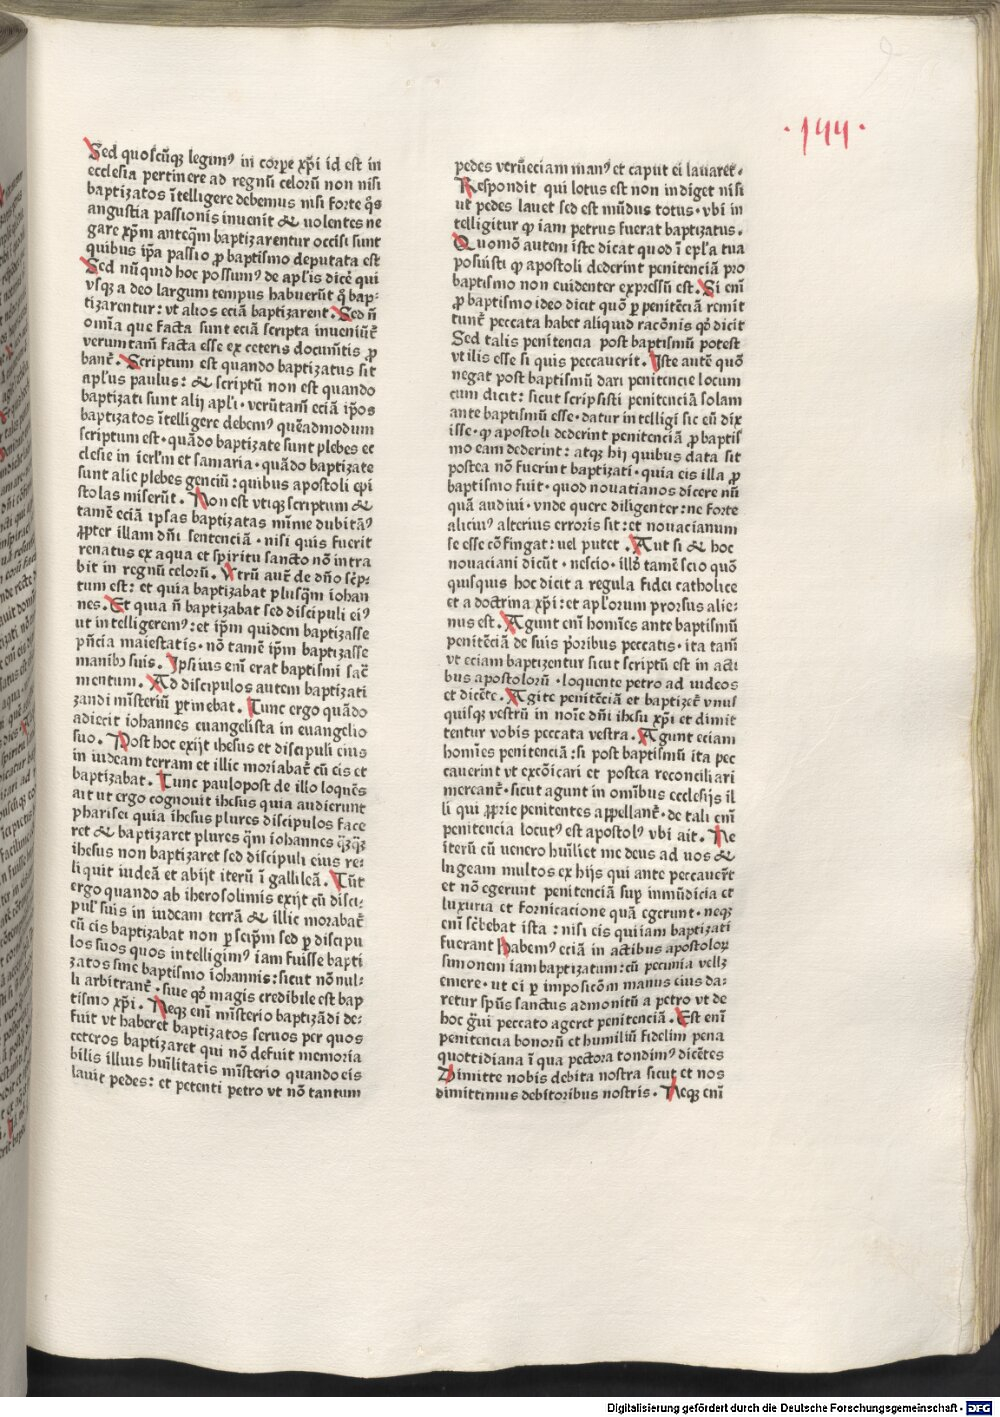 ·144·
Sed quoſcūqȝ legimꝰ in corꝑe xp̄i id eſt in
eccleſia pertinere ad regnū celorū non niſi
baptizatos ītelligere debemus niſi forte q̄s
anguſtia paſſionis inuenit & uolentes ne
gare xp̄m anteq̄m baptizarentur occiſi ſunt
quibus ip̄a paſſio ꝓ baptiſmo deputata eſt
Sed nūquid hoc poſſumꝰ de apl̄is dicē qui
vſqȝ a deo largum tempus habuerūt q̄ bap⸗
tizarentur: vt alios eciā baptizarent. Sed n̄
om̄ia que facta ſunt eciā ſcripta inueniūt̄
verumtam̄ facta eſſe ex ceteris documētis ꝓ
bant̄. Scriptum eſt quando baptizatus ſit
apl̄us paulus: & ſcriptū non eſt quando
baptizati ſunt alij apl̄i · verūtam̄ eciā ip̄os
baptizatos ītelligere debemꝰ quēadmodum
ſcriptum eſt · quādo baptizate ſunt plebes ec
cleſie in ierl̄m et ſamaria · quādo baptizate
ſunt alie plebes genciū: quibus apoſtoli epi
ſtolas miſerūt. Non eſt vtiqȝ ſcriptum &
tamē eciā ipſas baptizatas mīme dubitāꝰ
ꝓpter illam dn̄i ſentenciā · niſi quis fuerit
renatus ex aqua et ſpiritu ſancto nō intra
bit in regnū celorū. Vtrū aut̄ de dn̄o ſc̄p⸗
tum eſt: et quia baptizabat pluſq̄m iohan
nes. Et quia n̄ baptizabat ſed diſcipuli eiꝰ
ut intelligerem̄: et ip̄m quidem baptizaſſe
pn̄cia maieſtatis · nō tamē ip̄m baptizaſſe
manibȝ ſuis. Ipſius em̄ erat baptiſmi ſac̄
mentum. Ad diſcipulos autem baptizati
zandi miſteriū ꝑtinebat. Tunc ergo quādo
adiecit iohannes euangeliſta in euangelio
ſuo. Poſt hoc exijt iheſus et diſcipuli eius
in iudeam terram et illic moriabat̄ cū eis et
baptizabat. Tunc paulopoſt de illo loquēs
ait ut ergo cognouit iheſus quia audierunt
phariſei quia iheſus plures diſcipulos face
ret & baptizaret plures q̄m iohannes q̄ȝq̄ȝ
iheſus non baptizaret ſed diſcipuli eius re⸗
liquit iudeā et abijt iterū ī galileā. Tūt
ergo quando ab iheroſolimis exijt cū diſci⸗
pul̄ ſuis in iudeam terrā & illic morabat̄
cū eis baptizabat non ꝑ ſeip̄m ſed ꝑ diſcipu
los ſuos quos intelligimꝰ iam fuiſſe bapti
zatos ſiue baptiſmo iohannis: ſicut nōnul⸗
li arbitrant̄ · ſiue qd̄ magis credibile eſt bap
tiſmo xp̄i. Neqȝ em̄ miſterio baptizādi de⸗
fuit vt haberet baptizatos ſeruos per quos
ceteros baptizaret qui nō defuit memoria
bilis illuis hūilitatis miſterio quando eis
lauit pedes: et petenti petro vt nō tantum
pedes verūeciam manꝰ et caput ei lauaret·
Reſpondit qui lotus eſt non indiget niſi
ut pedes lauet ſed eſt mūdus totus · vbi in
telligitur ꝙ iam petrus fuerat baptizatus.
Quomō autem iſte dicat quod ī epl̄a tua
poſuiſti ꝙ apoſtoli dederint penitenciā pro
baptiſmo non euidenter expreſſū eſt. Si em̄
ꝓ baptiſmo ideo dicit quō ꝑ penitēciā remit
tunt̄ peccata habet aliquid racōnis qd̄ dicit
Sed talis penitencia poſt baptiſmū poteſt
vtilis eſſe ſi quis peccauerit. Iſte autē quō
negat poſt baptiſmū dari penitencie locum
cum dicit: ſicut ſcripſiſti penitenciā ſolam
ante baptiſmū eſſe · datur intelligi ſic eū dix
iſſe · ꝙ apoſtoli dederint penitenciā ꝓ baptiſ
mo eam dederint: atqȝ hij quibus data ſit
poſtea nō fuerint baptizati · quia eis illa ꝓ
baptiſmo fuit · quod nouatianos dicere nū
quā audiui · vnde quere diligenter: ne forte
alicuiꝰ alterius erroris ſit: et nouacianum
ſe eſſe cōfingat: uel putet. Aut ſi & hoc
nouaciani dicūt · neſcio · illd̄ tamē ſcio quō
quiſquis hoc dicit a regula fidei catholice
et a doctrina xp̄i: et apl̄orum prorſus alie⸗
nus eſt. Agunt em̄ homīes ante baptiſmū
penitēciā de ſuis p̄oribus peccatis · ita tam̄
vt eciam baptizentur ſicut ſcriptū eſt in acti
bus apoſtolorū · loquente petro ad iudeos
et dicēte. Agite penitēciā et baptizet̄ vnuſ
quiſqȝ veſtrū in noīe dn̄i iheſu xp̄i et dimit
tentur vobis peccata veſtra. Agunt eciam
homīes penitenciā: ſi poſt baptiſmū ita pec
cauerint vt excōicari et poſtea reconciliari
mereant̄ · ſicut agunt in om̄ibus eccleſijs il
li qui ꝓprie penitentes appellant̄ · de tali em̄
penitencia locutꝰ eſt apoſtolꝰ vbi ait. Ne
iterū cū uenero hūiliet me deus ad uos &
lugeam multos ex hijs qui ante peccauer̄t
et nō egerunt penitenciā ſuꝑ inmūdicia et
luxuria et fornicacione quā egerunt · neqȝ
em̄ ſc̄bebat iſta: niſi eis qui iam baptizati
fuerant Habemꝰ eciā in actibus apoſtoloꝝ
ſimonem iam baptizatum: cū pecunia vellȝ
emere · ut ei ꝑ impoſicōm manus eius da⸗
retur ſpūs ſanctus admonitū a petro vt de
hoc g̃ui peccato ageret penitenciā. Eſt em̄
penitencia bonorū et humiliū fidelim pena
quottidiana ī qua pectora tondimꝰ dicētes
Dimitte nobis debita noſtra ſicut et nos
dimittimus debitoribus noſtris. Neqȝ em̄
Digitalisierung gefördert durch die Deutsche Forschungsgemeinschaft - DFG